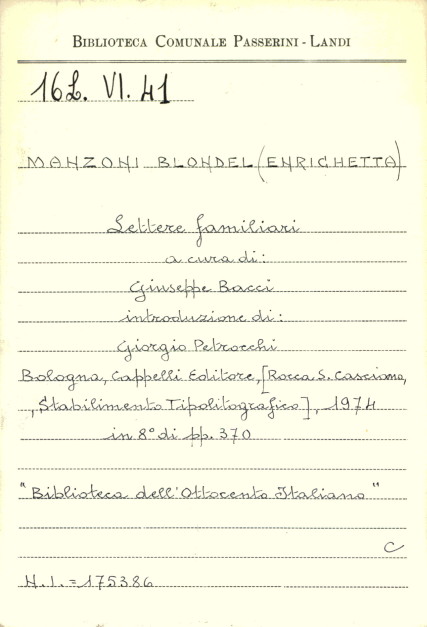 BIBLIOTECA COMUNALE PASSERINI - LANDI
16L. VI. 41
MANZONI BLONDEL (ENRICHETTA)
Lettere familiari
a cura di:
Giuseppe Bacci
introduzione di:
Giorgio Petrocchi
Bologna, Cappelli Editore, [Rocca S. Casciano,
, Stabilimento Tipolitografico], 1974
in 8° di pp. 370
"Biblioteca dell'Ottocento Italiano"
C
N.I. = 175386